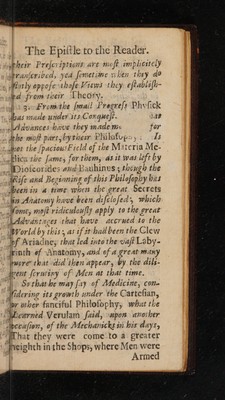 The Epistle to the Reader.
their Prescriptions are most implicitely
transcribed, yea sometime when they do
flatly oppose those Views they establish-
ed from their Theory.
2. From the small Progress Physick
has made under its Conquest.
Advances have they made for
the most part, by their Philosophy; Is
not the spacious Field of the Materia Me-
dica the same, for them, as it was left by
Dioscorides and Bauhinus; though the
Rise and Beginning of this Philosophy has
been in a time when the great Secrets
in Anatomy have been disclosed; which
some, most ridiculously apply to the great
Advantages that have accrued to the
World by this; as if it had been the Clew
of Ariadne, that led into the vast Laby-
rinth of Anatomy, and of a great many
more that did then appear, by the dili-
gent scrutiny of Men at that time.
So that he may say of Medicine, con-
sidering its growth under the Cartesian,
or other fanciful Philosophy, what the
Learned Verulam said, upon another
occasion, of the Mechanicks in his days,
That they were come to a greater
heighth in the Shops, where Men were
Armed